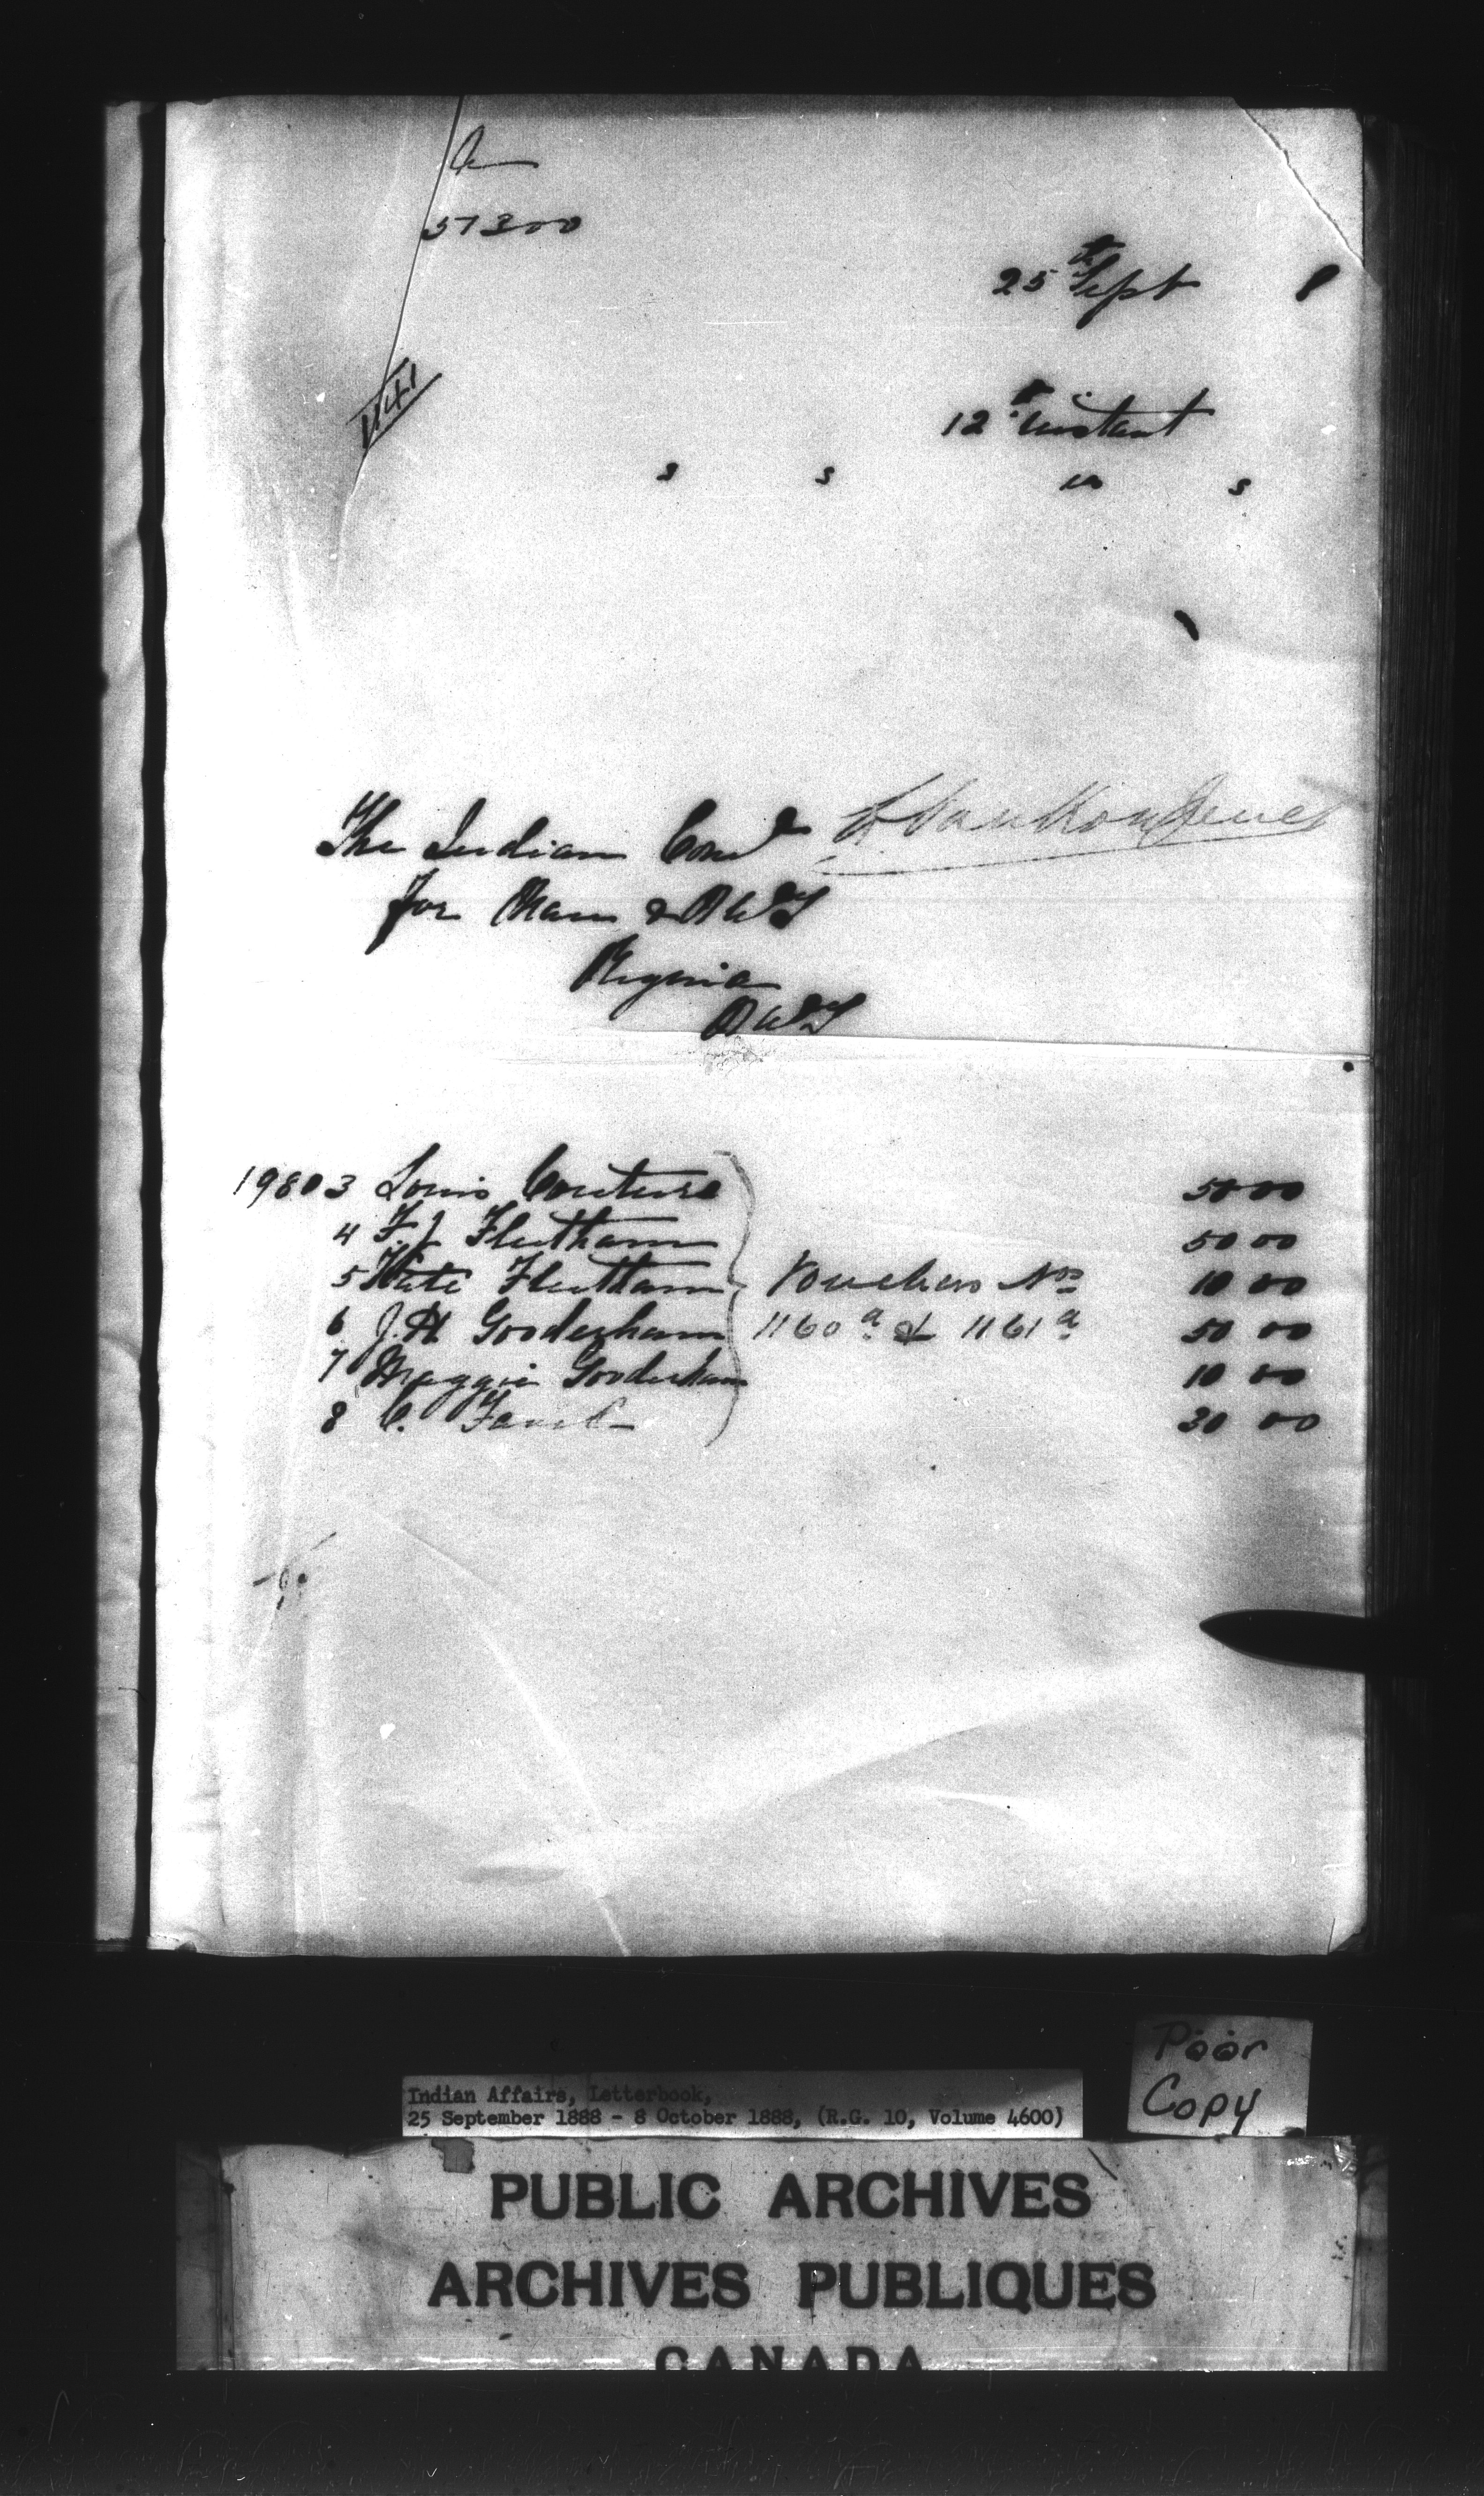 A
57300
25th Sept 8
1141
12th instant
s s in s
L. Vankoughnet
The Indian Comr
for Man & N.W.T
Regina
N.W.T
19803 Louis Couture 50 00
4 F. J. Fleetham 50 00
5 Kate Fleetham Vouchers Nos 10 00
6 J. H. Gooderham 1160a & 1161a 50 00
7 Maggie Gooderham 10 00
8 C. 30 00
Poor
Copy
Indian Affairs, Letterbook,
25 September 1888 - 8 October 1888, (R.G. 10, Volume 4600)
PUBLIC ARCHIVES
ARCHIVES PUBLIQUES
CANADA